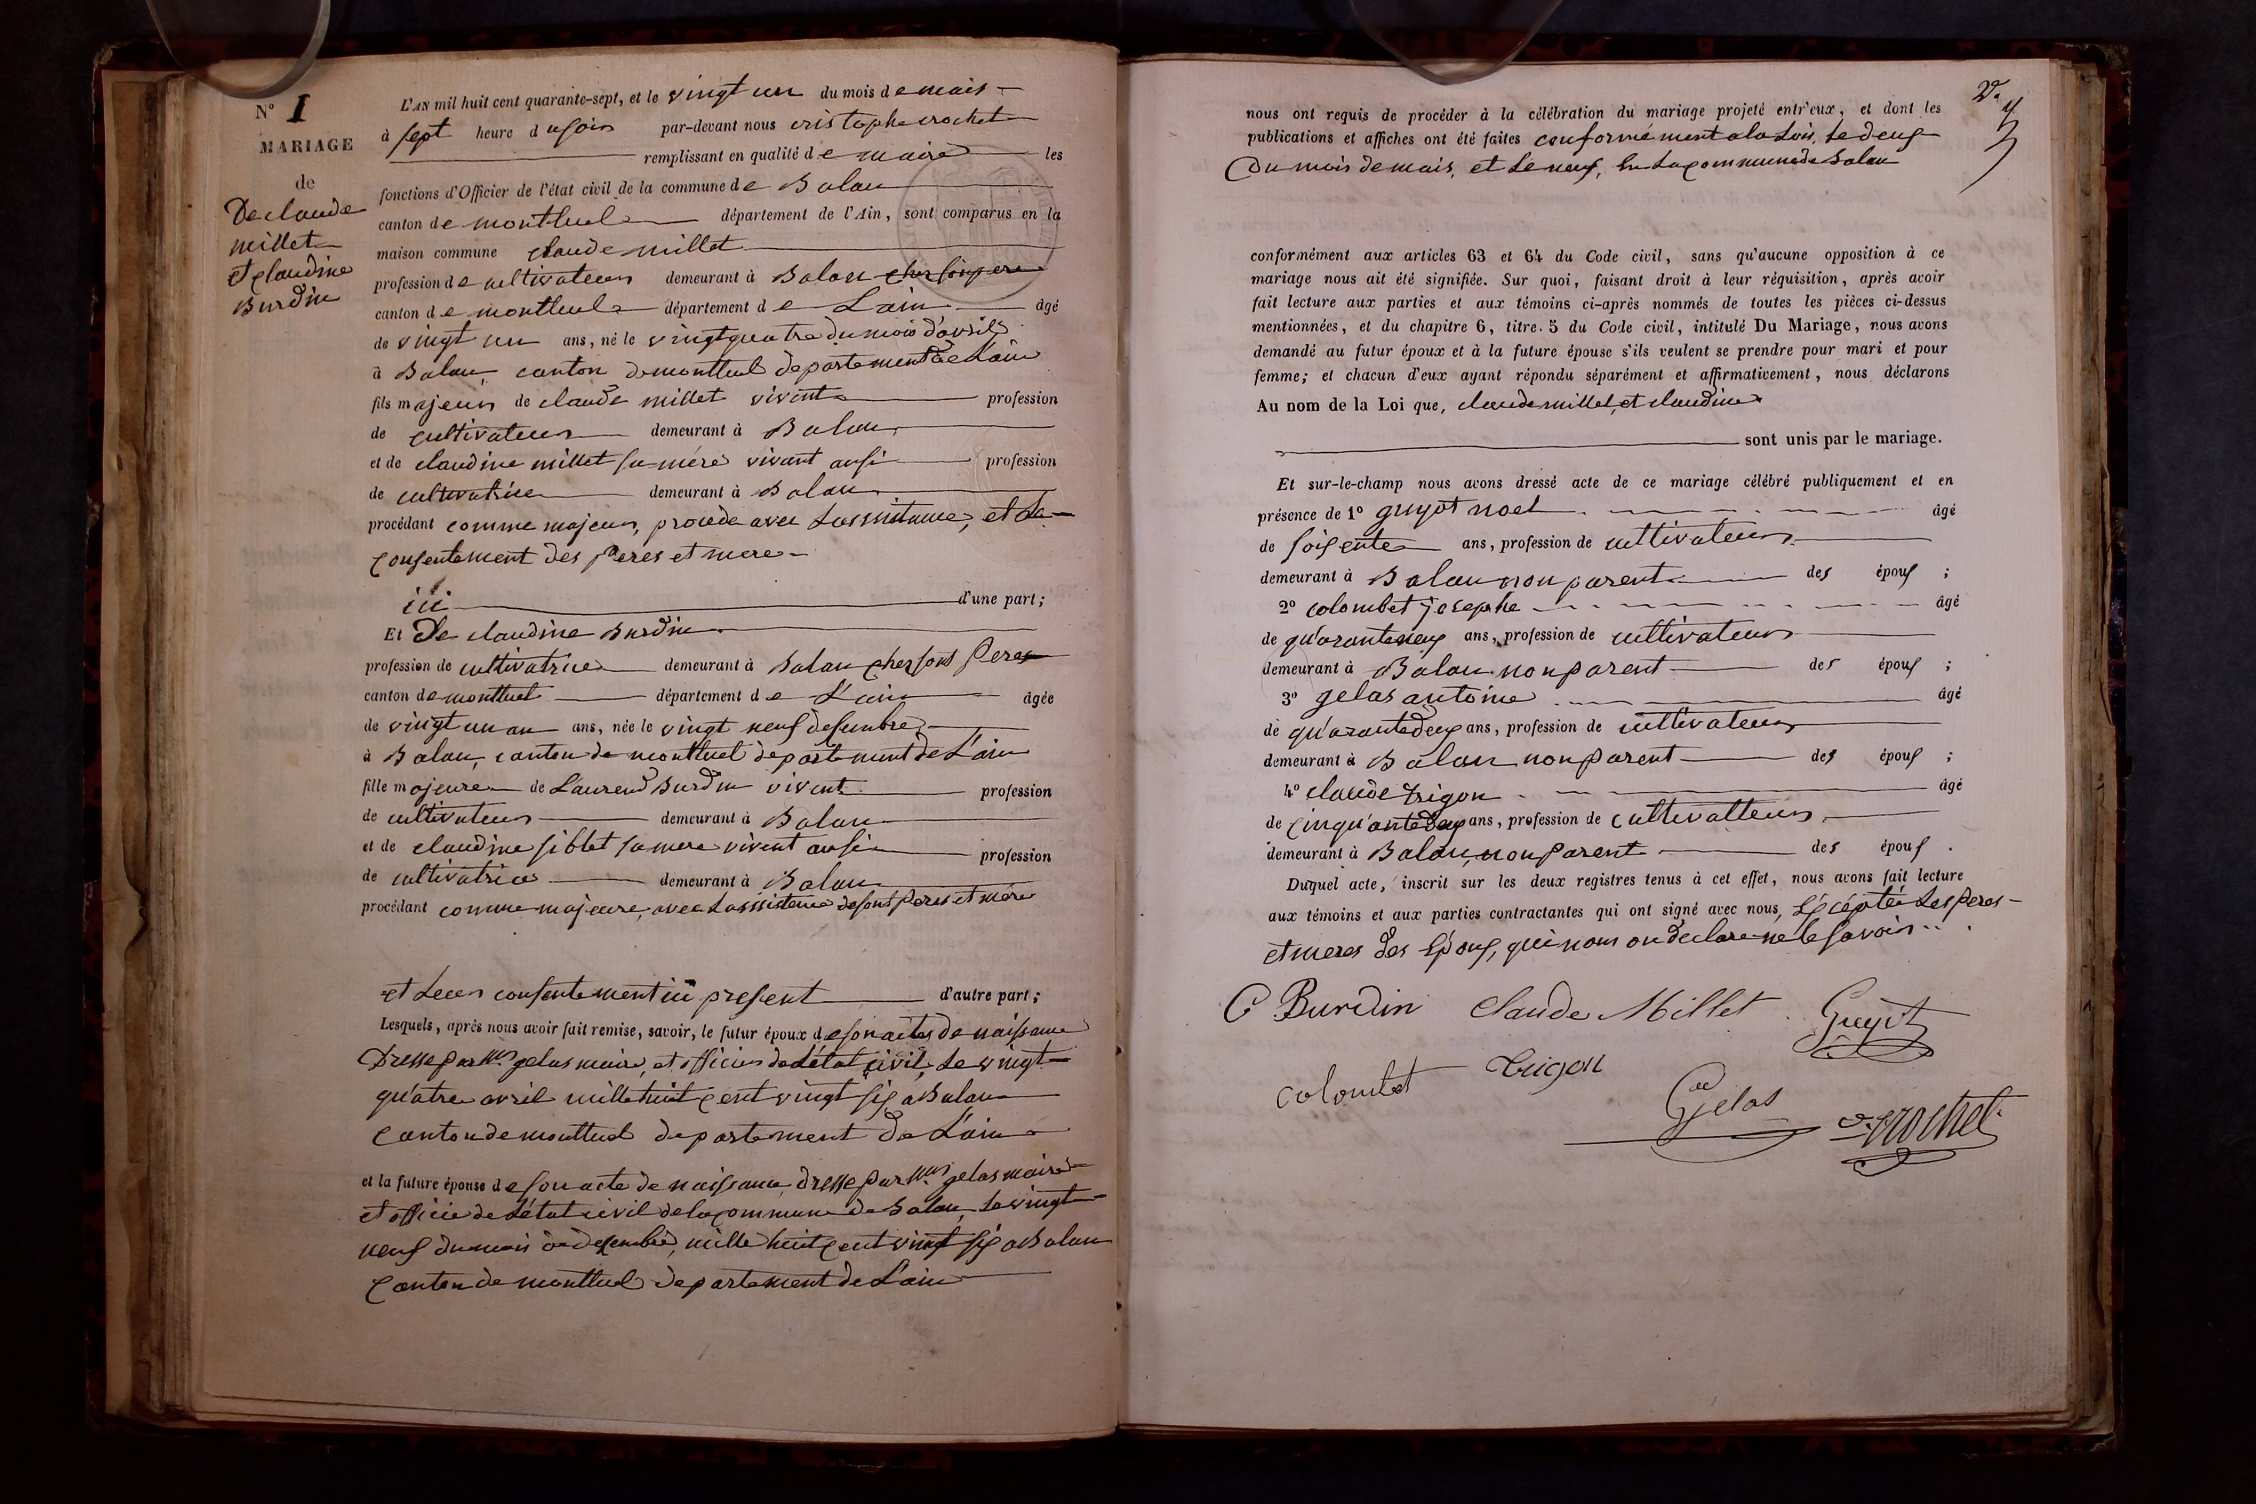 N° 1
MARIAGE
de
De claude
millet
et claudine
Burdin
L'AN mil huit cent quarante-sept, et le vingt un du mois de mais
à sept heure du soir par-devant nous cristophe crochet
remplissant en qualité de maire les
fonctions d'Officier de l'état civil de la commune de Balan
canton de montluel département de l'Ain, sont comparus en la
maison commune claude millet
profession de cultivateur demeurant à Balan cher son pere
canton de montluel département de Lain âgé
de vingt un ans, né le vingt quatre du mois d'avril
à Balan, canton de montluel departement de Lain
fils majeur de claude millet vivent profession
de cultivateur demeurant à Balan
et de claudine millet sa mére vivant ausi profession
de cultivatrice demeurant à Balan
procédant comme majeur, procede avec Lassistance, et Le
consentement des Peres et mere
ici d'une part;
Et De claudine Burdin
profession de cultivatrice demeurant à Balan cher sont Peres
canton de montluel département de L'ain âgée
de vingt un an ans, née le vingt neuf desembre
à Balan, canton de montluel departement de L'ain
fille majeure de Laurend Burdin vivent profession
de cultivateur demeurant à Balan
et de claudine siblet sa mere vivent ausi profession
de cultivatrice demeurant à Balan
procédant comme majeure, avec Lassistance de sont Peres et mére
et Leur consentement ici present d'autre part;
Lesquels, après nous avoir fait remise, savoir, le futur époux de son actes de naissance
Dresse par mr gelas maire, et officier de L'état civil, Le vingt
qu'atre avril mille huit cent vingt six a Balan
Canton de montluel departement de L'ain
et la future épouse de son acte de naissance dresse par mr gelas maire
et officie de L'état civil de la commune de Balan, Le vingt
neuf du mois de desembre, mille huit cent vingt six a Balan
Canton de montluel departement de L'ain
nous ont requis de procéder à la célébration du mariage projeté entr'eux, et dont les
publications et affiches ont été faites conformement a la Lois, Le deux
Du mois de mais, et Le neuf, en La commune de Balan
conformément aux articles 63 et 64 du Code civil, sans qu'aucune opposition à ce
mariage nous ait été signifiée. Sur quoi, faisant droit à leur réquisition, après avoir
fait lecture aux parties et aux témoins ci-après nommés de toutes les pièces ci-dessus
mentionnées, et du chapitre 6, titre. 5 du Code civil, intitulé Du Mariage, nous avons
demandé au futur époux et à la future épouse s'ils veulent se prendre pour mari et pour
femme; et chacun d'eux ayant répondu séparément et affirmativement, nous déclarons
Au nom de la Loi que, claude millet, et claudine
sont unis par le mariage.
Et sur-le-champ nous avons dressé acte de ce mariage célébré publiquement et en
présence de 1° guyot noel âgé
de soisente ans, profession de cultivateur
demeurant à Balan non parent des épous ;
2° colombet josephe âgé
de qu'arante neuf ans, profession de cultivateur
demeurant à Balan non parent des épous ;
3° gelas antoine âgé
de qu'arante deux ans, profession de cultivateur
demeurant à Balan non parent des épous ;
4° claude trigon âgé
de cinqu'ante deux ans, profession de cultivatteur
demeurant à Balan, non parent des épous .
Duquel acte, inscrit sur les deux registres tenus à cet effet, nous avons fait lecture
aux témoins et aux parties contractantes qui ont signé avec nous, Excéptée Les peres
et meres des Epous, qui nous on declare ne le savoir
C Burdin Claude Millet Guyot
colombet trigon
Gelas crochet